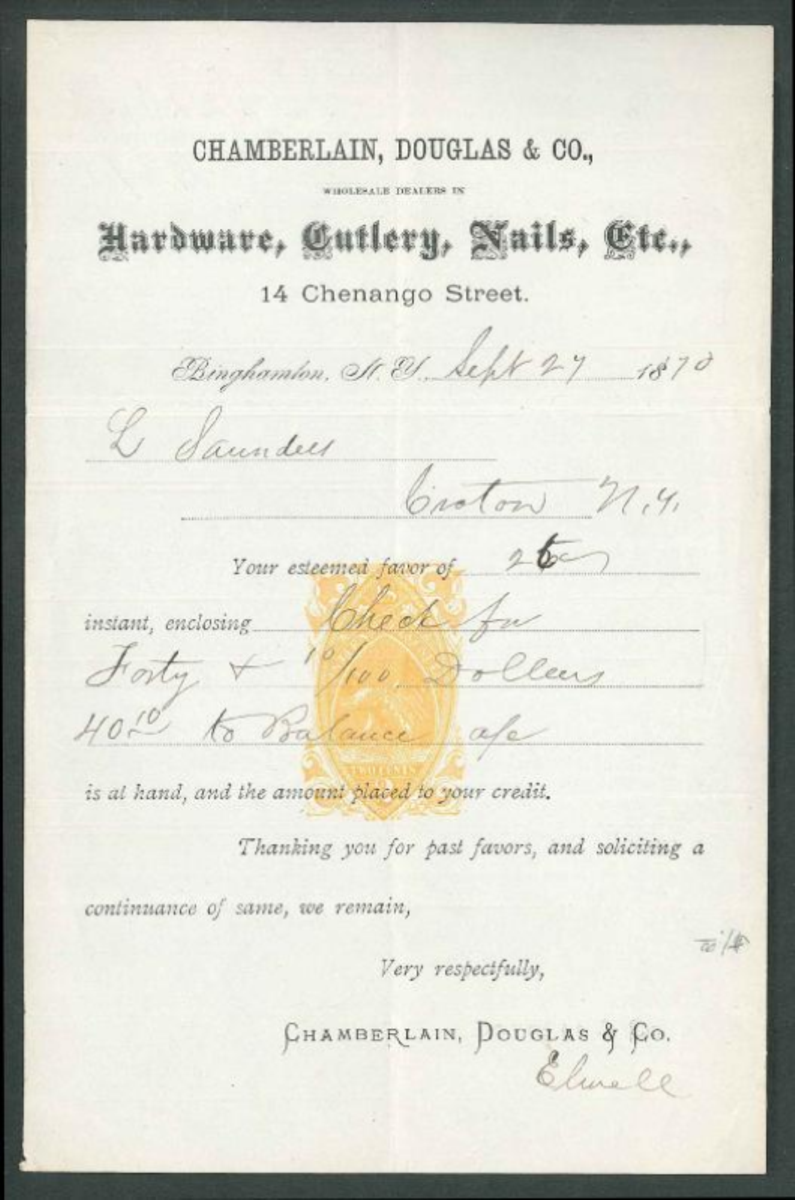 CHAMBERLAIN, DOUGLAS & CO.,
WHOLESALE DEALERS IN
Hardware, Cutlery, Nails, Etc.,
14 Chenango Street.
Binghamton, N. Y. Sept 27 1870
L Saunders
Croton N.Y.
Your esteemed favor of
instant, enclosing Check for
Forty & 10/100 Dollars
40 10 to Balance a/c
TWO CENTS
is at hand, and the amount placed to your credit.
Thanking you for past favors, and soliciting a
continuance of same, we remain,
Very respectfully,
CHAMBERLAIN, DOUGLAS & CO.
Elwell